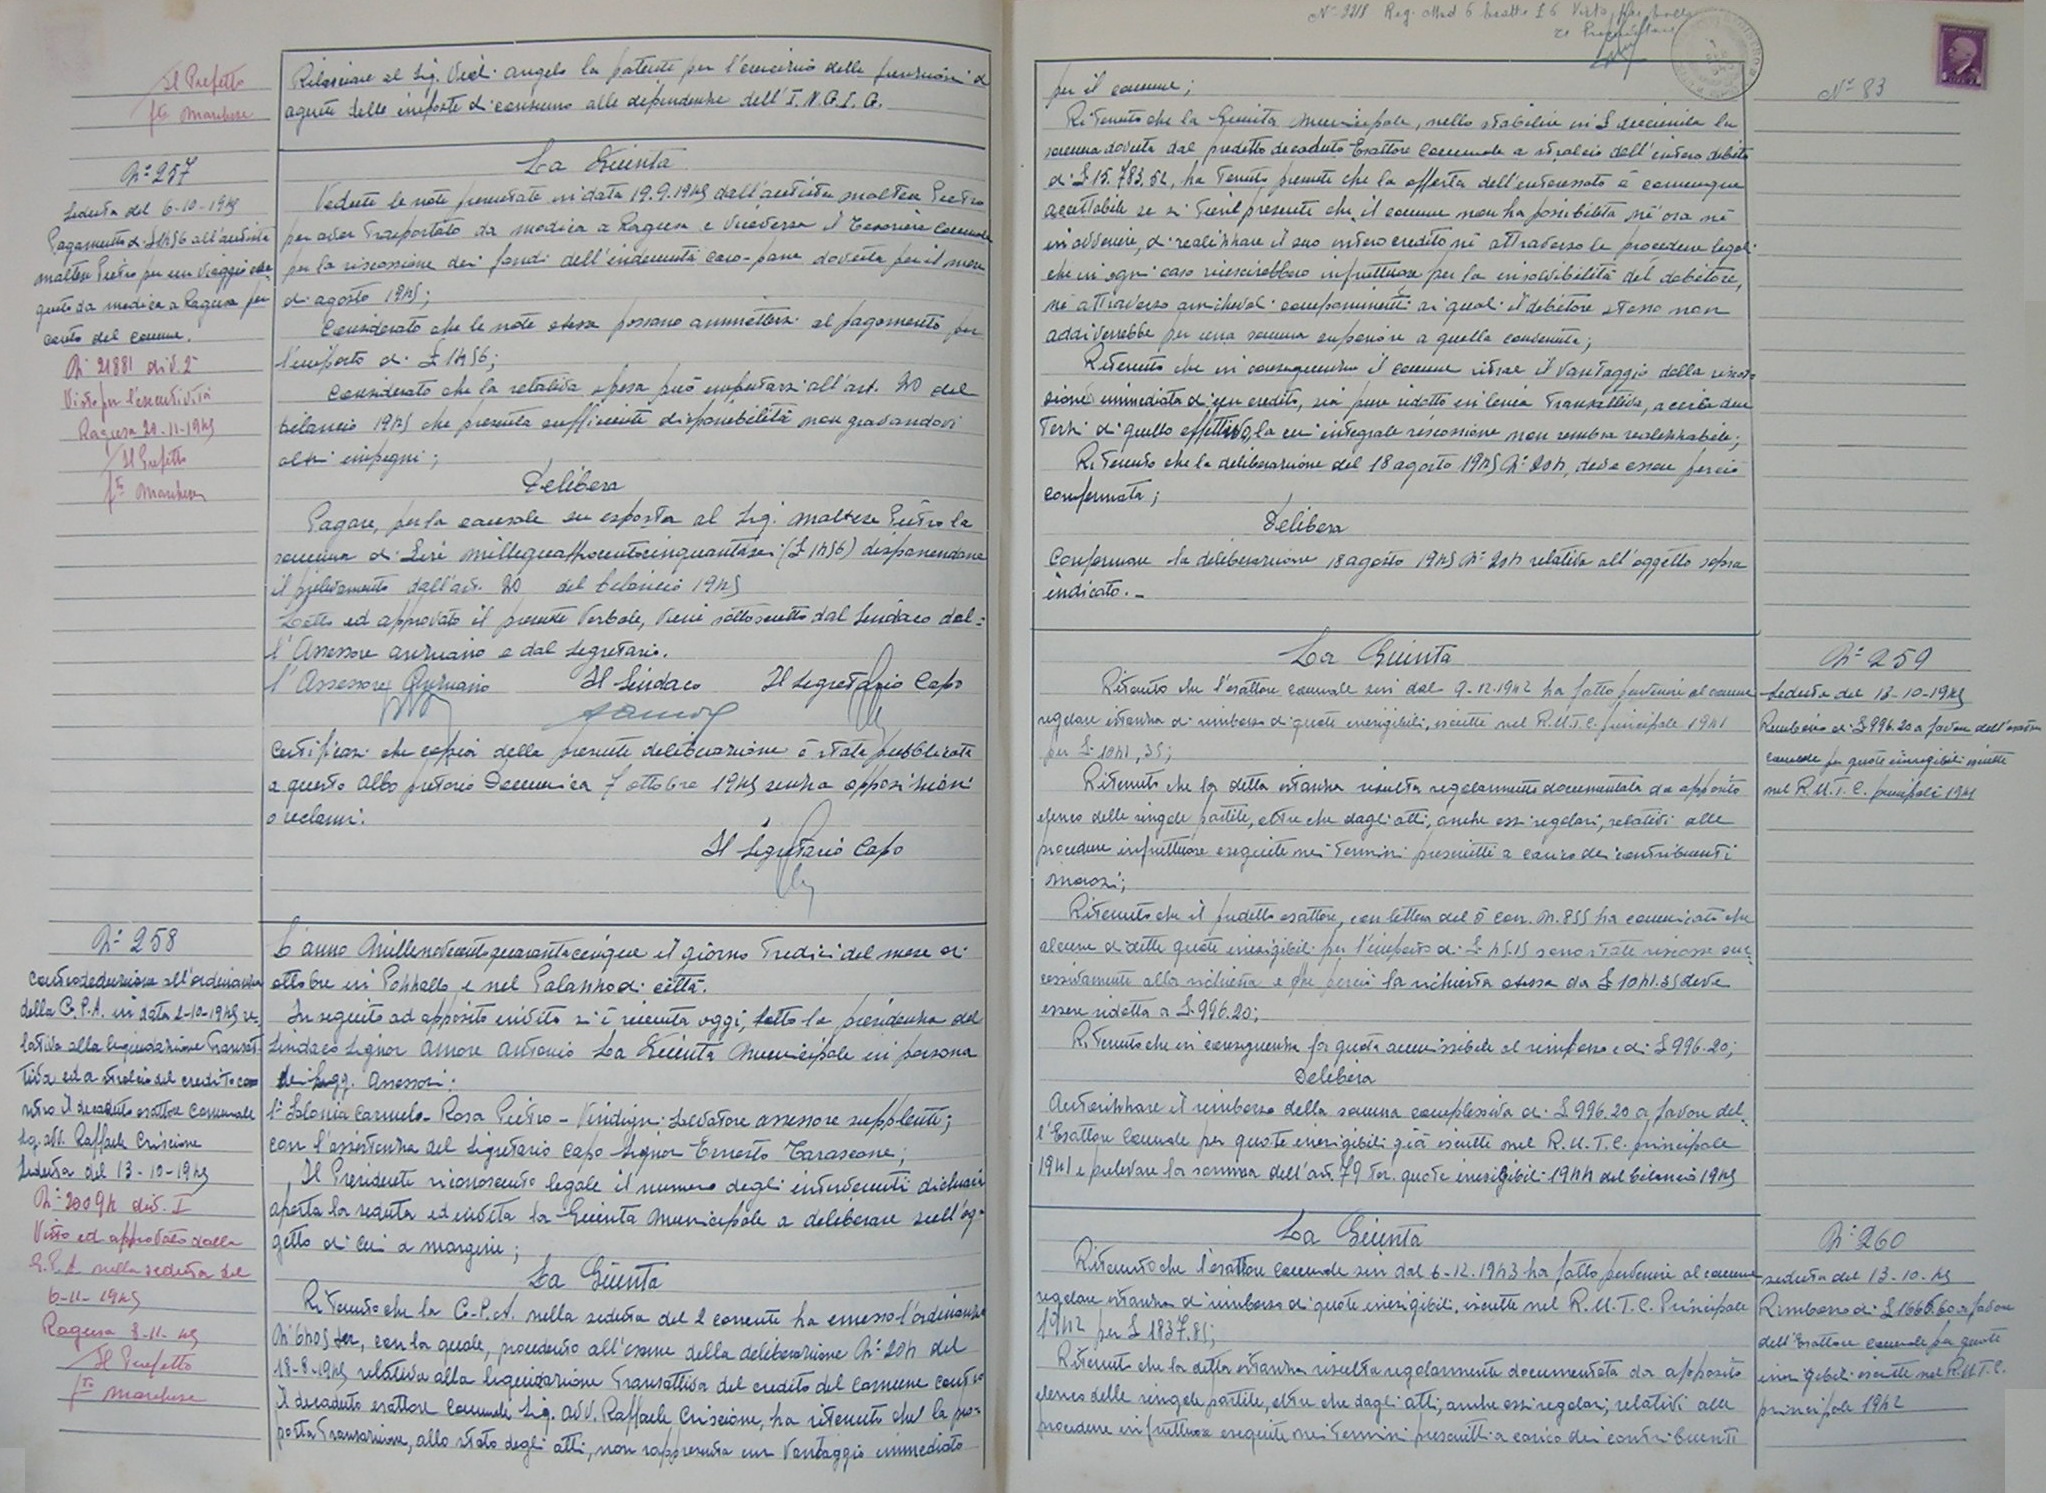 Il Prefetto
fto Marchese
Rilasciare al Sig. Angelo la patente per l'esercizio delle funzioni di
agente delle imposte di consumo alle dipendenze dell'I.N.G.I.C.
N° 257
Seduta del 6-10-1945
Pagamento di £ 1456 all'autista
Maltese Pietro per un viaggio ese
guito da Modica a Ragusa per
conto del Comune.
N° 21881 div. 2a
Visto per l'esecutività
Ragusa 20-11-1945
Il Prefetto
fto Marchese
La Giunta
Vedute le note presentate in data 19.9.1945 dall'autista Maltese Pietro
per aver trasportato da Modica a Ragusa e viceversa il Tesoriere Comunale
per la riscossione dei fondi dell'indennità caro-pane dovuta per il mese
di agosto 1945;
Considerato che le note stesse possono ammettersi al pagamento per
l'importo di £ 1456;
Considerato che la relativa spesa può imputarsi all'art. 20 del
bilancio 1945 che presenta sufficiente disponibilità non gravandovi
altri impegni;
Delibera
Pagare, per la causale su esposta al Sig. Maltese Pietro la
somma di Lire millequattrocentocinquantasei (£ 1456) disponendone
il prelevamento dall'art. 20 del bilancio 1945
Letto ed approvato il presente verbale, viene sottoscritto dal Sindaco dal=
l'Assessore anziano e dal Segretario.
l'Assessore Anziano Il Sindaco Il Segretario Capo
Certificasi che copia della presente deliberazione è stata pubblicata
a questo Albo pretorio Domenica 7 ottobre 1945 senza opposizioni
o reclami.
Il Segretario Capo
N° 258
Controdeduzione all'ordinanza
della G.P.A. in data 2-10-1945 re
lativa alla liquidazione transat
tiva ed a stralcio del credito co
ntro il decaduto esattore Comunale
Sig. avv. Raffaele Criscione
Seduta del 13-10-1945
N° 20094 div. I
Visto ed approvato dalla
G.P.A. nella seduta del
6-11-1945
Ragusa 8-11-45
Il Prefetto
fto Marchese
L'anno Millenovecentoquarantacinque il giorno tredici del mese di
ottobre in Pozzallo e nel Palazzo di città.
In seguito ad apposito invito si è riunita oggi, sotto la presidenza del
Sindaco Signor Amore Antonio La Giunta Municipale in persona
dei Sigg. Assessori:
Carmelo - Rosa Pietro - Vindigni Salvatore assessore supplenti;
con l'assistenza del Segretario Capo Signor Ernesto Tarascone;
Il Presidente riconosciuto legale il numero degli intervenuti dichiara
aperta la seduta ed invita la Giunta Municipale a deliberare sull'og=
getto di cui a margine;
La Giunta
Ritenuto che la G.P.A. nella seduta del 2 corrente ha emesso l'ordinanza
con la quale, procedendo all'esame della deliberazione N° 204 del
18-8-1945 relativa alla liquidazione transattiva del credito del Comune contro
il decaduto esattore Comunale Sig. avv. Raffaele Criscione, ha ritenuto che la pro=
posta transazione, allo stato degli atti, non rappresenta un vantaggio immediato
N° 83
per il comune;
Ritenuto che la Giunta Municipale, nello stabilire in £ diecimila la
somma dovuta dal predetto decaduto Esattore Comunale a stralcio dell'intero debito
di £ 15.783.52, ha tenuto presente che la offerta dell'interessato è comunque
accettabile se si tiene presente che il comune non ha possibilità nè ora nè
in avvenire, di realizzare il suo intero credito nè attraverso le procedure legali
che in ogni caso riuscirebbero infruttuose per la insolvibilità del debitore,
nè attraverso amichevoli componimenti ai quali il debitore stesso non
addiverrebbe per una somma superiore a quella convenuta;
Ritenuto che in conseguenza il comune ritrae il vantaggio della riscos=
sione immediata di un credito, sia pure ridotto in linea transattiva, a circa due
terzi di quello effettivo, la cui integrale riscossione non sembra realizzabile;
Ritenuto che la deliberazione del 18 agosto 1945 N° 204, deve essere perciò
confermata;
Delibera
Confermare la deliberazione 18 agosto 1945 N° 204 relativa all'oggetto sopra
indicato.-
La Giunta
N° 259
Seduta del 13-10-1945
Rimborso di £ 996.20 a favore dell'esattore
comunale per quote inesigibili iscritte
nel R.U.T.C. principali 1941
Ritenuto che l'esattore comunale sin dal 9-12-1942 ha fatto pervenire al comune
regolare istanza di rimborso di quote inesigibili, iscritte nel R.U.T.C. principale 1941
per £ 1041,35;
Ritenuto che la detta istanza risulta regolarmente documentata da apposito
elenco delle singole partite, oltre che dagli atti, anche essi regolari, relativi alle
procedure infruttuose eseguite nei termini prescritti a carico dei contribuenti
morosi;
Ritenuto che il predetto esattore, con lettera del 8 corr. N. 855 ha comunicato che
alcune di dette quote inesigibili per l'importo di £ 45.15 sono state riscosse suc=
cessivamente alla richiesta e che perciò la richiesta stessa da £ 1041.35 deve
essere ridotta a £ 996.20;
Ritenuto che in conseguenza la quota ammissibile al rimborso è di £ 996.20;
Delibera
Autorizzare il rimborso della somma complessiva di £ 996.20 a favore del=
l'Esattore Comunale per quote inesigibili già iscritte nel R.U.T.C. principale
1941 e prelevare la somma dell'art. 79 quote inesigibili 1944 del bilancio 1945
La Giunta
N° 260
seduta del 13-10-45
Rimborso di £ 1665.60 a favore
dell'Esattore comunale per quote
inesigibili iscritte nel R.U.T.C.
principale 1942
Ritenuto che l'esattore comunale sin dal 6-12-1943 ha fatto pervenire al comune
regolare istanza di rimborso di quote inesigibili, iscritte nel R.U.T.C. Principale
1942 per £ 1837.85;
Ritenuto che la detta istanza risulta regolarmente documentata da apposito
elenco delle singole partite, oltre che dagli atti, anche essi regolari, relativi alle
procedure infruttuose eseguite nei termini prescritti a carico dei contribuenti